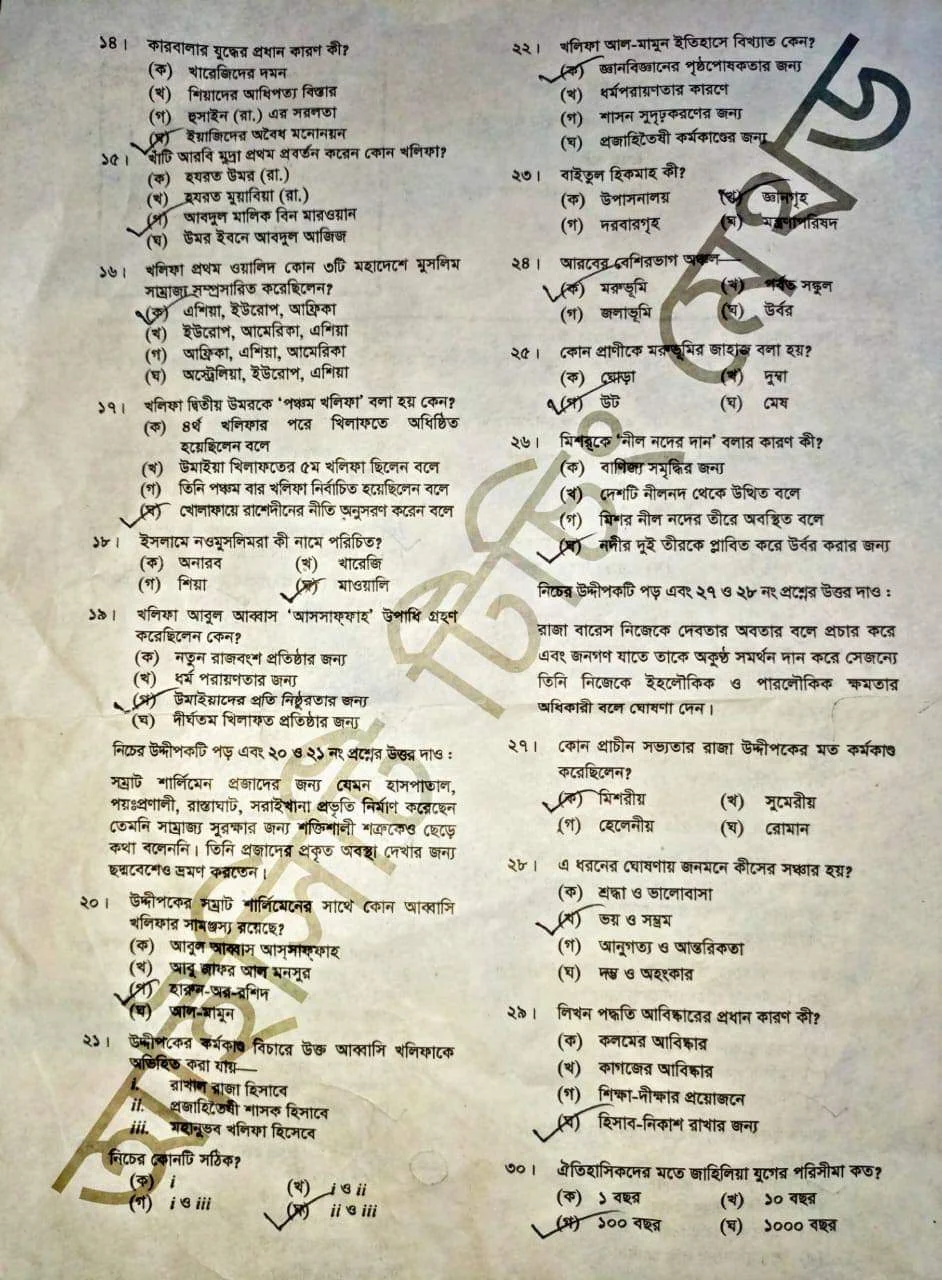 ১৪। কারবালার যুদ্ধের প্রধান কারণ কী?
(ক) খারেজিদের দমন
(খ) শিয়াদের আধিপত্য বিস্তার
(গ) হুসাইন (রা.) এর সরলতা
(ঘ) ইয়াজিদের অবৈধ মনোনয়ন
১৫। খাঁটি আরবি মুদ্রা প্রথম প্রবর্তন করেন কোন খলিফা?
(ক) হযরত উমর (রা.)
(খ) হযরত মুয়াবিয়া (রা.)
(গ) আবদুল মালিক বিন মারওয়ান
(ঘ) উমর ইবনে আবদুল আজিজ
১৬। খলিফা প্রথম ওয়ালিদ কোন ৩টি মহাদেশে মুসলিম
সাম্রাজ্য সম্প্রসারিত করেছিলেন?
(ক) এশিয়া, ইউরোপ, আফ্রিকা
(খ) ইউরোপ, আমেরিকা, এশিয়া
(গ) আফ্রিকা, এশিয়া, আমেরিকা
(ঘ) অস্ট্রেলিয়া, ইউরোপ, এশিয়া
১৭। খলিফা দ্বিতীয় উমরকে ‘পঞ্চম খলিফা’ বলা হয় কেন?
(ক) ৪র্থ খলিফার পরে খিলাফতে অধিষ্ঠিত
হয়েছিলেন বলে
(খ) উমাইয়া খিলাফতের ৫ম খলিফা ছিলেন বলে
(গ) তিনি পঞ্চম বার খলিফা নির্বাচিত হয়েছিলেন বলে
(ঘ) খোলাফায়ে রাশেদীনের নীতি অনুসরণ করেন বলে
১৮। ইসলামে নওমুসলিমরা কী নামে পরিচিত?
(ক) অনারব (খ) খারেজি
(গ) শিয়া (ঘ) মাওয়ালি
১৯। খলিফা আবুল আব্বাস ‘আসসাফ্ফাহ’ উপাধি গ্রহণ
করেছিলেন কেন?
(ক) নতুন রাজবংশ প্রতিষ্ঠার জন্য
(খ) ধর্ম পরায়ণতার জন্য
(গ) উমাইয়াদের প্রতি নিষ্ঠুরতার জন্য
(ঘ) দীর্ঘতম খিলাফত প্রতিষ্ঠার জন্য
নিচের উদ্দীপকটি পড় এবং ২০ ও ২১ নং প্রশ্নের উত্তর দাও :
সম্রাট শার্লিমেন প্রজাদের জন্য যেমন হাসপাতাল,
পয়ঃপ্রণালী, রাস্তাঘাট, সরাইখানা প্রভৃতি নির্মাণ করেছেন
তেমনি সাম্রাজ্য সুরক্ষার জন্য শক্তিশালী শত্রুকেও ছেড়ে
কথা বলেননি। তিনি প্রজাদের প্রকৃত অবস্থা দেখার জন্য
ছদ্মবেশেও ভ্রমণ করতেন।
২০। উদ্দীপকের সম্রাট শার্লিমেনের সাথে কোন আব্বাসি
খলিফার সামঞ্জস্য রয়েছে?
(ক) আবুল আব্বাস আস্‌সাফ্‌ফাহ
(খ) আবু জাফর আল মনসুর
(গ) হারুন-অর-রশিদ
(ঘ) আল-মামুন
২১। উদ্দীপকের কর্মকাণ্ড বিচারে উক্ত আব্বাসি খলিফাকে
অভিহিত করা যায়—
i. রাখাল রাজা হিসাবে
ii. প্রজাহিতৈষী শাসক হিসাবে
iii. মহানুভব খলিফা হিসেবে
নিচের কোনটি সঠিক?
(ক) i (খ) i ও ii
(গ) i ও iii (ঘ) ii ও iii
২২। খলিফা আল-মামুন ইতিহাসে বিখ্যাত কেন?
(ক) জ্ঞানবিজ্ঞানের পৃষ্ঠপোষকতার জন্য
(খ) ধর্মপরায়ণতার কারণে
(গ) শাসন সুদৃঢ়করণের জন্য
(ঘ) প্রজাহিতৈষী কর্মকাণ্ডের জন্য
২৩। বাইতুল হিকমাহ কী?
(ক) উপাসনালয় (খ) জ্ঞানগৃহ
(গ) দরবারগৃহ (ঘ) মন্ত্রণাপরিষদ
২৪। আরবের বেশিরভাগ অঞ্চল—
(ক) মরুভূমি (খ) পর্বত সঙ্কুল
(গ) জলাভূমি (ঘ) উর্বর
২৫। কোন প্রাণীকে মরুভূমির জাহাজ বলা হয়?
(ক) ঘোড়া (খ) দুম্বা
(গ) উট (ঘ) মেষ
২৬। মিশরকে ‘নীল নদের দান’ বলার কারণ কী?
(ক) বাণিজ্য সমৃদ্ধির জন্য
(খ) দেশটি নীলনদ থেকে উত্থিত বলে
(গ) মিশর নীল নদের তীরে অবস্থিত বলে
(ঘ) নদীর দুই তীরকে প্লাবিত করে উর্বর করার জন্য
নিচের উদ্দীপকটি পড় এবং ২৭ ও ২৮ নং প্রশ্নের উত্তর দাও :
রাজা বারেস নিজেকে দেবতার অবতার বলে প্রচার করে
এবং জনগণ যাতে তাকে অকুণ্ঠ সমর্থন দান করে সেজন্যে
তিনি নিজেকে ইহলৌকিক ও পারলৌকিক ক্ষমতার
অধিকারী বলে ঘোষণা দেন।
২৭। কোন প্রাচীন সভ্যতার রাজা উদ্দীপকের মত কর্মকাণ্ড
করেছিলেন?
(ক) মিশরীয় (খ) সুমেরীয়
(গ) হেলেনীয় (ঘ) রোমান
২৮। এ ধরনের ঘোষণায় জনমনে কীসের সঞ্চার হয়?
(ক) শ্রদ্ধা ও ভালোবাসা
(খ) ভয় ও সম্ভ্রম
(গ) আনুগত্য ও আন্তরিকতা
(ঘ) দম্ভ ও অহংকার
২৯। লিখন পদ্ধতি আবিষ্কারের প্রধান কারণ কী?
(ক) কলমের আবিষ্কার
(খ) কাগজের আবিষ্কার
(গ) শিক্ষা-দীক্ষার প্রয়োজনে
(ঘ) হিসাব-নিকাশ রাখার জন্য
৩০। ঐতিহাসিকদের মতে জাহিলিয়া যুগের পরিসীমা কত?
(ক) ১ বছর (খ) ১০ বছর
(গ) ১০০ বছর (ঘ) ১০০০ বছর